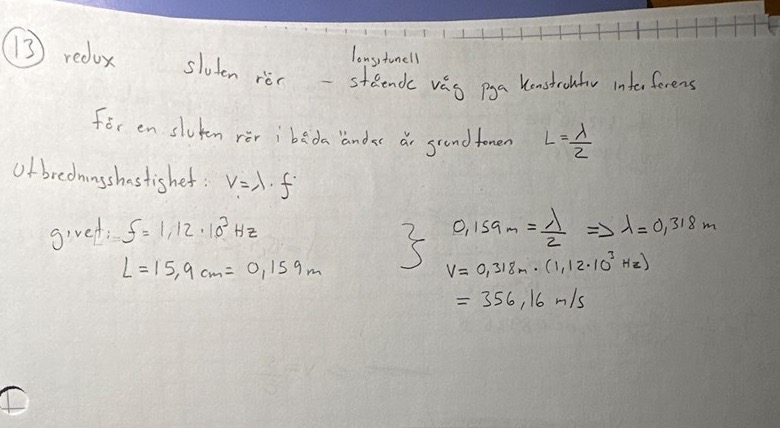 13 redux sluten rör – longitunell stående våg pga konstruktiv interferens
För en sluten rör i båda ändar är grundtonen L = λ/2
Utbredningshastighet: v = λ · f
givet: f = 1,12 · 10³ Hz
L = 15,9 cm = 0,159 m
} 0,159 m = λ/2 => λ = 0,318 m
v = 0,318 m · (1,12 · 10³ Hz)
= 356,16 m/s